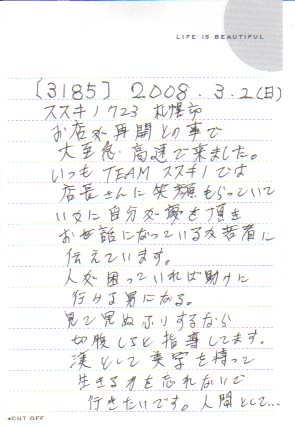 LIFE IS BEAUTIFUL
[3185] 2008.3.2(日)
ススキノ723 札幌市
お店が再開との事で
大至急・高速で来ました。
いつもTEAMススキノでは
店長さんに笑顔もらっていて
いいに自分が頂き
お世話になっている若者に
伝えています。
人が困っていれば助けに
行ける男になる。
見て見ぬふりするなら
切腹しろと指導してます。
漢として美学を持って
生きる力を忘れないで
行きたいです。人間として…
◂CUT OFF